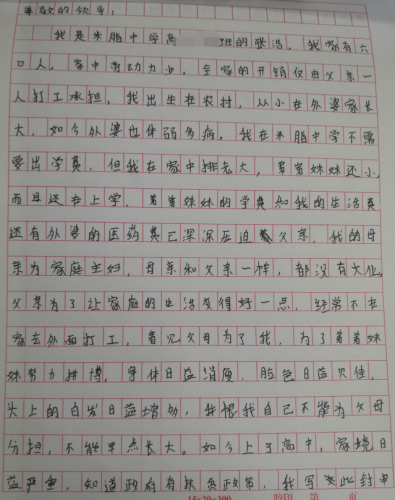 尊敬的领导：
我是米脂中学高 班的张浩，我家有六
口人，家中劳动力少，全家的开销仅由父亲一
人打工承担，我出生在农村，从小在外婆家长
大，如今外婆也体弱多病，我在米脂中学不需
要出学费，但我在家中排老大，弟弟妹妹还小，
而且还在上学，弟弟妹妹的学费和我的生活费
还有外婆的医药费已深深压迫 父亲，我的母
亲为家庭主妇，母亲和父亲一样，都没有文化，
父亲为了让家庭的生活变得好一点，经常不在
家去外面打工，看见父母为了我，为了弟弟妹
妹努力拼搏，身体日益消瘦，脸色日益欠佳，
头上的白发日益增多，我恨我自己不能为父母
分担，不能早点长大。如今上了高中，家境日
益严重，知道政府有扶贫政策，我写 此封申
15×20=300 第 页